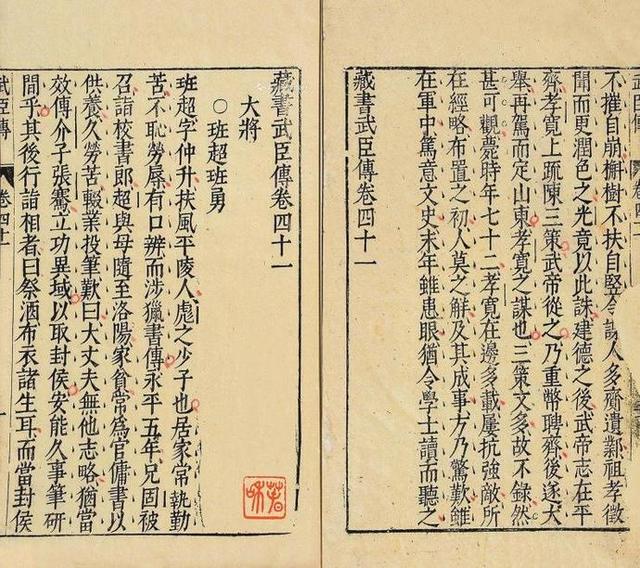 不摧自崩檞樹不扶自竪令諜人多齎遺鄴祖孝徵
聞而更潤色之光竟以此誅建德之後武帝志在平
齊孝寬上疏陳三策武帝從之乃重幣聘齊後遂大
舉再駕而定山東孝寬之謀也三策文多故不錄然
甚可觀薨時年七十二孝寬在邊多載屢抗強敵所
在經略布置之初人莫之解及其成事方乃驚歎雖
在軍中篤意文史末年雖患眼猶令學士讀而聽之
藏書武臣傳卷四十一
藏書武臣傳卷四十一
大將
○班超班勇
班超字仲升扶風平陵人彪之少子也居家常執勤
苦不恥勞辱有口辨而涉獵書傳永平五年兄固被
召詣校書郎超與母隨至洛陽家貧常爲官傭書以
供養久勞苦輟業投筆歎曰大丈夫無他志略猶當
效傅介子張騫立功異域以取封侯安能久事筆硏
間乎其後行詣相者曰祭酒布衣諸生耳而當封侯
武臣傳 卷四十一